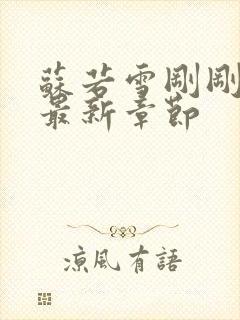 蘇若雪剛剛
最新章節
涼風有語